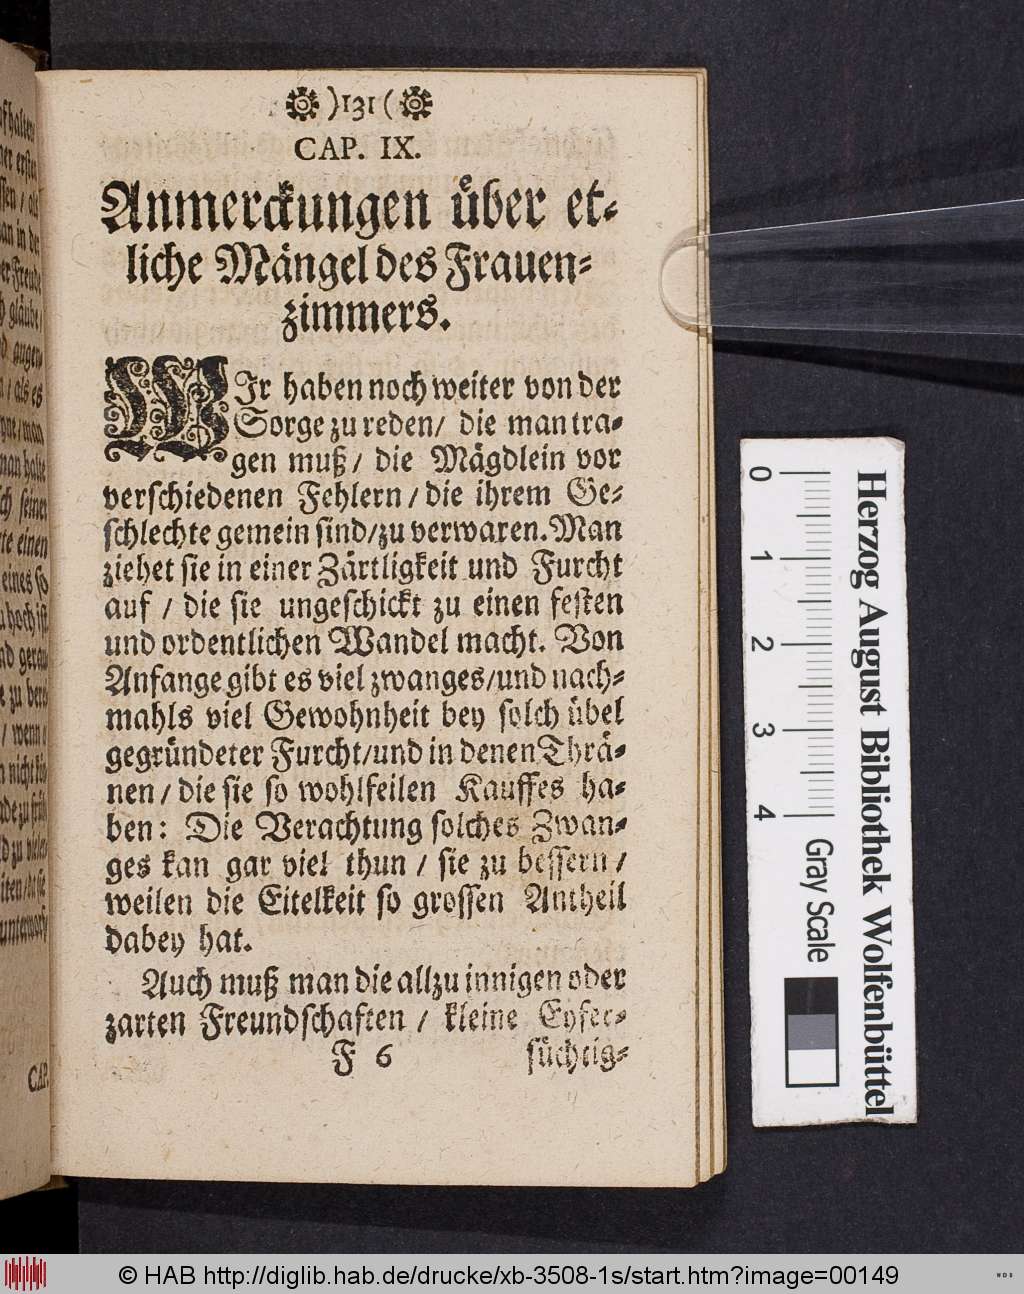 )131(
CAP. IX.
Anmerckungen über et-
liche Mängel des Frauen-
zimmers.
WIr haben noch weiter von der
Sorge zu reden/ die man tra-
gen muß/ die Mägdlein vor
verschiedenen Fehlern/ die ihrem Ge-
schlechte gemein sind/zu verwaren. Man
ziehet sie in einer Zärtligkeit und Furcht
auf / die sie ungeschickt zu einen festen
und ordentlichen Wandel macht. Von
Anfange gibt es viel zwanges/und nach-
mahls viel Gewohnheit bey solch übel
gegründeter Furcht/und in denen Thrä-
nen / die sie so wohlfeilen Kauffes ha-
ben: Die Verachtung solches Zwan-
ges kan gar viel thun / sie zu bessern /
weilen die Eitelkeit so grossen Antheil
dabey hat.
Auch muß man die allzu innigen oder
zarten Freundschaften / kleine Eyfer-
F 6 süchtig-
CAP.
0 1 2 3 4 Gray Scale
Herzog August Bibliothek Wolfenbüttel
© HAB http://diglib.hab.de/drucke/xb-3508-1s/start.htm?image=00149